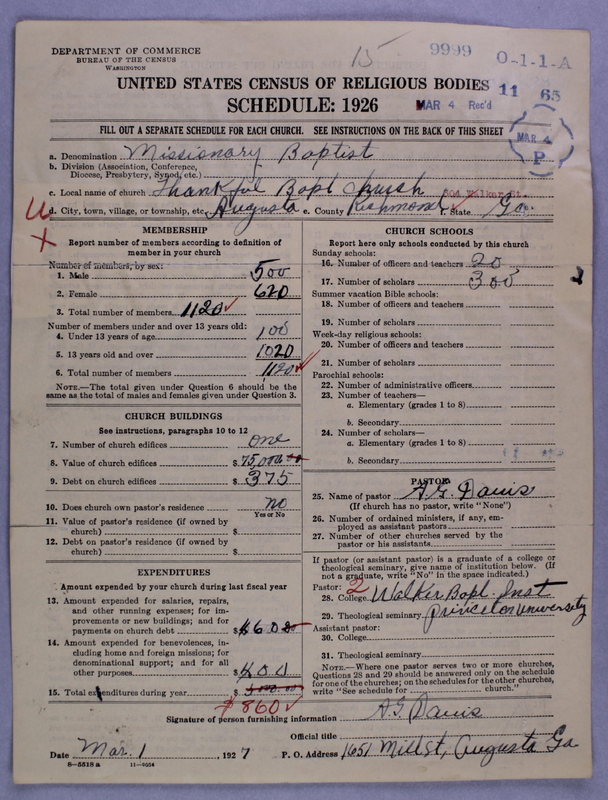 15
9999
O-1-1-A
DEPARTMENT OF COMMERCE
BUREAU OF THE CENSUS
WASHINGTON
UNITED STATES CENSUS OF RELIGIOUS BODIES
SCHEDULE: 1926
MAR 4 Rec'd
11 65
MAR 4
P
FILL OUT A SEPARATE SCHEDULE FOR EACH CHURCH. SEE INSTRUCTIONS ON THE BACK OF THIS SHEET
a. Denomination Missionary Baptist
b. Division (Association, Conference, Diocese, Presbytery, Synod, etc.)
c. Local name of church Thankful Bapt Church Walker St.
d. City, town, village, or township, etc. Augusta e. County Richmond f. State Ga.
X
MEMBERSHIP
Report number of members according to definition of member in your church
Number of members, by sex:
1. Male 500
2. Female 620
3. Total number of members 1120 ✓
Number of members under and over 13 years old:
4. Under 13 years of age 100
5. 13 years old and over 1020
6. Total number of members 1120 ✓
NOTE.—The total given under Question 6 should be the same as the total of males and females given under Question 3.
CHURCH BUILDINGS
See instructions, paragraphs 10 to 12
7. Number of church edifices one
8. Value of church edifices $ 75,000
9. Debt on church edifices $ 375
10. Does church own pastor's residence no
Yes or No
11. Value of pastor's residence (if owned by church) $
12. Debt on pastor's residence (if owned by church) $
EXPENDITURES
Amount expended by your church during last fiscal year
13. Amount expended for salaries, repairs, and other running expenses; for improvements or new buildings; and for payments on church debt $
14. Amount expended for benevolences, including home and foreign missions; for denominational support; and for all other purposes $ 400
15. Total expenditures during year $
$860 ✓
CHURCH SCHOOLS
Report here only schools conducted by this church
Sunday schools:
16. Number of officers and teachers 20
17. Number of scholars 300
Summer vacation Bible schools:
18. Number of officers and teachers
19. Number of scholars
Week-day religious schools:
20. Number of officers and teachers
21. Number of scholars
Parochial schools:
22. Number of administrative officers
23. Number of teachers—
a. Elementary (grades 1 to 8)
b. Secondary
24. Number of scholars—
a. Elementary (grades 1 to 8)
b. Secondary
PASTOR
25. Name of pastor A.G. Davis
(If church has no pastor, write "None")
26. Number of ordained ministers, if any, employed as assistant pastors
27. Number of other churches served by the pastor or his assistants
If pastor (or assistant pastor) is a graduate of a college or theological seminary, give name of institution below. (If not a graduate, write "No" in the space indicated.)
Pastor: 2
28. College Walker Bapt. Inst
29. Theological seminary Princeton University
Assistant pastor:
30. College
31. Theological seminary
NOTE.—Where one pastor serves two or more churches, Questions 28 and 29 should be answered only on the schedule for one of the churches; on the schedules for the other churches, write "See schedule for church."
Signature of person furnishing information A.G. Davis
Official title
Date Mar. 1, 1927 P. O. Address 1651 Mill St, Augusta Ga
8—5518 a 11—9024